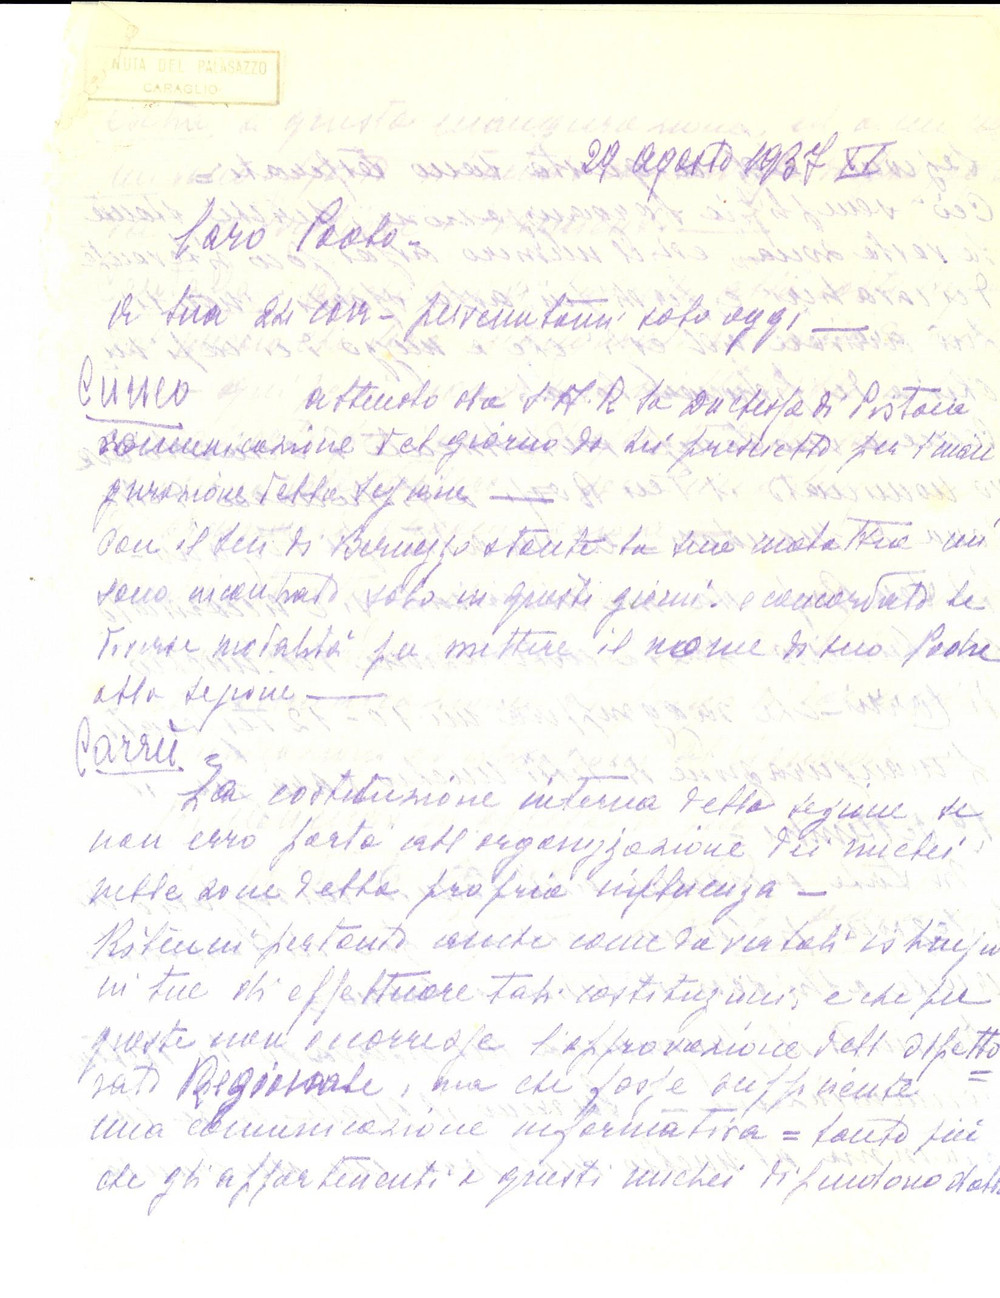 NUTA DEL PALASAZZO
CARAGLIO
29 agosto 1937 XV
Caro Paolo -
la tua 24 corr - pervenutami solo oggi —
Cuneo attendo da S A R la Duchessa di Pistoia
comunicazione del giorno da lei prescelto per l'inau
gurazione della sezione —
Con il Ten di Bernezzo stante la sua malattia mi
sono incontrato solo in questi giorni. e concordato le
diverse modalità per mettere il nome di suo Padre
alla sezione —
Carrù =
La costituzione interna della sezione se
non erro porta all'organizzazione dei nuclei
nelle zone della propria influenza -
Ritenni pertanto anche come da verbali
in tue di effettuare tali costituzioni, e che per
queste non occorresse l'approvazione dell' Ispetto
rato Regionale, ma che fosse sufficiente =
una comunicazione informativa = tanto più
che gli appartenenti a questi nuclei dipendono